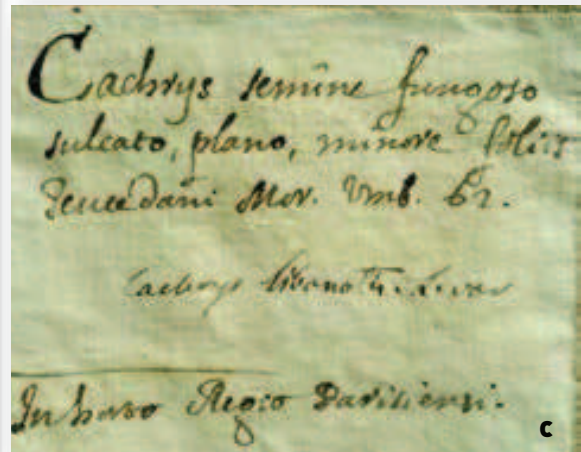 Cachrys semine fungoso
sulcato, plano, minore foliis
Peucedani Mor. Umb. 62.
Cachrys libanotis. L. var
In horto Regio Parisiensi.
C